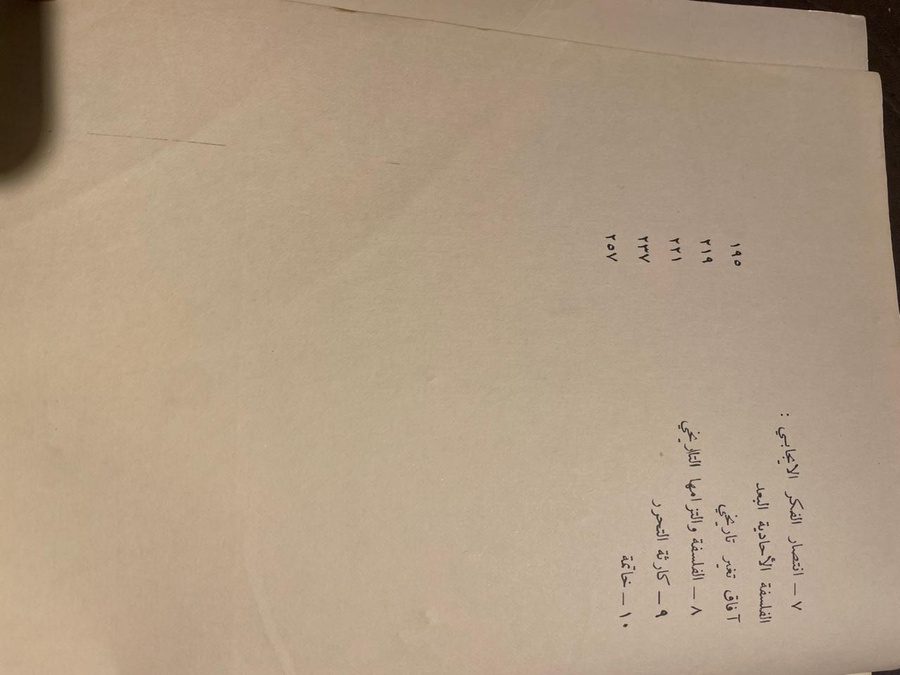 ٧ – انتصار الفكر الايجابي :
الفلسفة الأحادية البعد ١٩٥
آفاق تغير تاريخي ٢١٩
٨ – الفلسفة والتزامها التاريخي ٢٢١
٩ – كارثة التحرر ٢٣٧
١٠ – خاتمة ٢٥٧